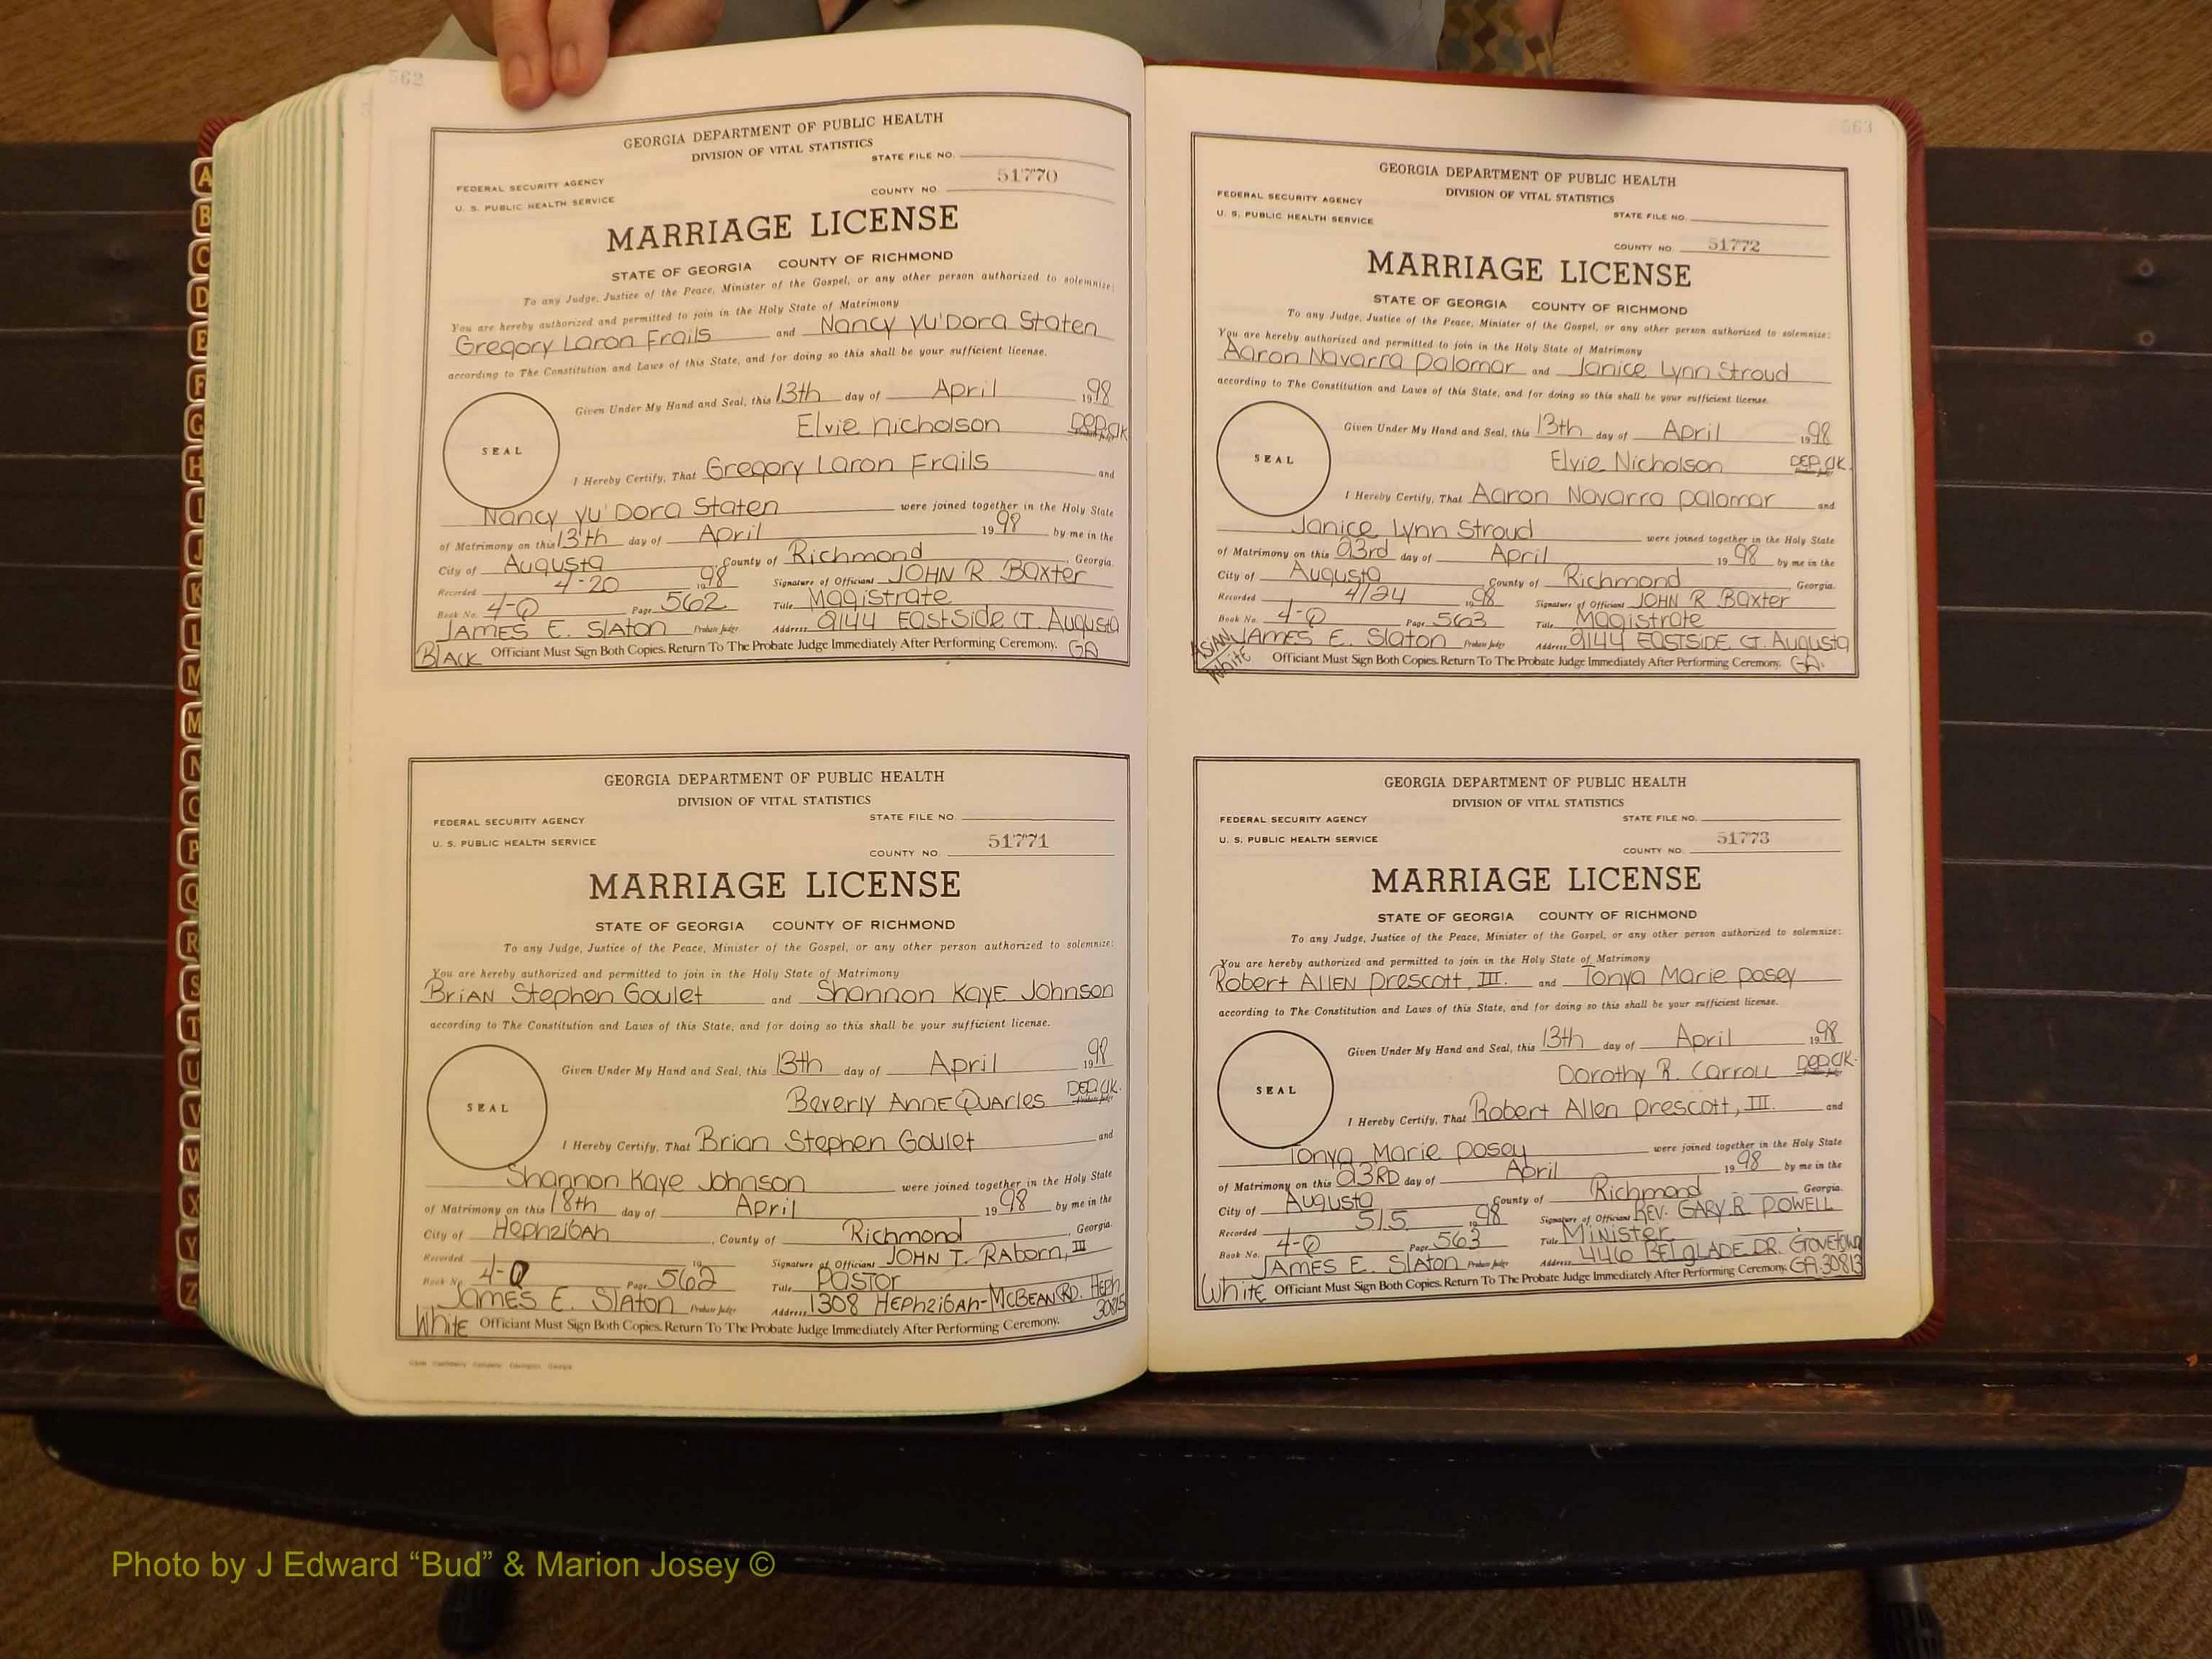 562
GEORGIA DEPARTMENT OF PUBLIC HEALTH
DIVISION OF VITAL STATISTICS
STATE FILE NO.
FEDERAL SECURITY AGENCY
U. S. PUBLIC HEALTH SERVICE
COUNTY NO. 51770
MARRIAGE LICENSE
STATE OF GEORGIA COUNTY OF RICHMOND
To any Judge, Justice of the Peace, Minister of the Gospel, or any other person authorized to solemnize:
You are hereby authorized and permitted to join in the Holy State of Matrimony
Gregory Laron Frails and Nancy Vu'Dora Staten
according to The Constitution and Laws of this State, and for doing so this shall be your sufficient license.
Given Under My Hand and Seal, this 13th day of April 1998
Elvie Nicholson DEP. CK
SEAL
I Hereby Certify, That Gregory Laron Frails and
Nancy Vu'Dora Staten were joined together in the Holy State
of Matrimony on this 13th day of April 1998 by me in the
City of Augusta, County of Richmond, Georgia.
Recorded 4-20 1998 Signature of Officiant JOHN R. Baxter
Book No. 4-Q Page 562 Title Magistrate
JAMES E. SLATON Probate Judge Address 2144 EastSide CT. Augusta
BLACK Officiant Must Sign Both Copies. Return To The Probate Judge Immediately After Performing Ceremony. GA
GEORGIA DEPARTMENT OF PUBLIC HEALTH
DIVISION OF VITAL STATISTICS
STATE FILE NO.
FEDERAL SECURITY AGENCY
U. S. PUBLIC HEALTH SERVICE
COUNTY NO. 51771
MARRIAGE LICENSE
STATE OF GEORGIA COUNTY OF RICHMOND
To any Judge, Justice of the Peace, Minister of the Gospel, or any other person authorized to solemnize:
You are hereby authorized and permitted to join in the Holy State of Matrimony
BriAN Stephen Goulet and Shannon KAYE Johnson
according to The Constitution and Laws of this State, and for doing so this shall be your sufficient license.
Given Under My Hand and Seal, this 13th day of April 1998
Beverly ANNE QUArles DEP. CK.
SEAL
I Hereby Certify, That Brian Stephen Goulet and
Shannon Kaye Johnson were joined together in the Holy State
of Matrimony on this 18th day of April 1998 by me in the
City of HEphzibAh, County of Richmond, Georgia.
Recorded 19 Signature of Officiant JOHN T. RAborn, III
Book No. 4-Q Page 562 Title PASTOR
JAMES E. SLATON Probate Judge Address 1308 HEphzibAh-McBEAN RD. HEPH 30815
White Officiant Must Sign Both Copies. Return To The Probate Judge Immediately After Performing Ceremony.
563
GEORGIA DEPARTMENT OF PUBLIC HEALTH
DIVISION OF VITAL STATISTICS
FEDERAL SECURITY AGENCY
U. S. PUBLIC HEALTH SERVICE
STATE FILE NO.
COUNTY NO. 51772
MARRIAGE LICENSE
STATE OF GEORGIA COUNTY OF RICHMOND
To any Judge, Justice of the Peace, Minister of the Gospel, or any other person authorized to solemnize:
You are hereby authorized and permitted to join in the Holy State of Matrimony
Aaron Navarra Palomar and Janice Lynn Stroud
according to The Constitution and Laws of this State, and for doing so this shall be your sufficient license.
Given Under My Hand and Seal, this 13th day of April 1998
Elvie Nicholson DEP. CK.
SEAL
I Hereby Certify, That Aaron Navarra Palomar and
Janice Lynn Stroud were joined together in the Holy State
of Matrimony on this 23rd day of April 1998 by me in the
City of Augusta, County of Richmond Georgia.
Recorded 4/24 1998 Signature of Officiant JOHN R Baxter
Book No. 4-Q Page 563 Title Magistrate
JAMES E. Slaton Probate Judge Address 2144 EASTSIDE CT. Augusta
ASIAN White Officiant Must Sign Both Copies. Return To The Probate Judge Immediately After Performing Ceremony. GA.
GEORGIA DEPARTMENT OF PUBLIC HEALTH
DIVISION OF VITAL STATISTICS
FEDERAL SECURITY AGENCY
STATE FILE NO.
U. S. PUBLIC HEALTH SERVICE
COUNTY NO. 51773
MARRIAGE LICENSE
STATE OF GEORGIA COUNTY OF RICHMOND
To any Judge, Justice of the Peace, Minister of the Gospel, or any other person authorized to solemnize:
You are hereby authorized and permitted to join in the Holy State of Matrimony
Robert ALLEN Prescott, III. and Tonya Marie Posey
according to The Constitution and Laws of this State, and for doing so this shall be your sufficient license.
Given Under My Hand and Seal, this 13th day of April 1998
Dorothy R. Carroll DEP. CK.
SEAL
I Hereby Certify, That Robert Allen Prescott, III. and
Tonya Marie Posey were joined together in the Holy State
of Matrimony on this 23RD day of April 1998 by me in the
City of Augusta, County of Richmond Georgia.
Recorded 5/5 1998 Signature of Officiant REV. GARY R. POWELL
Book No. 4-Q Page 563 Title Minister
JAMES E. SLATON Probate Judge Address 446 BELGLADE DR. GROVETOWN
White Officiant Must Sign Both Copies. Return To The Probate Judge Immediately After Performing Ceremony. GA. 30813
A
B
C
D
E
F
G
H
I
J
K
L
M
M
N
O
P
Q
R
S
T
U
V
W
X
Y
Z
Photo by J Edward “Bud” & Marion Josey ©